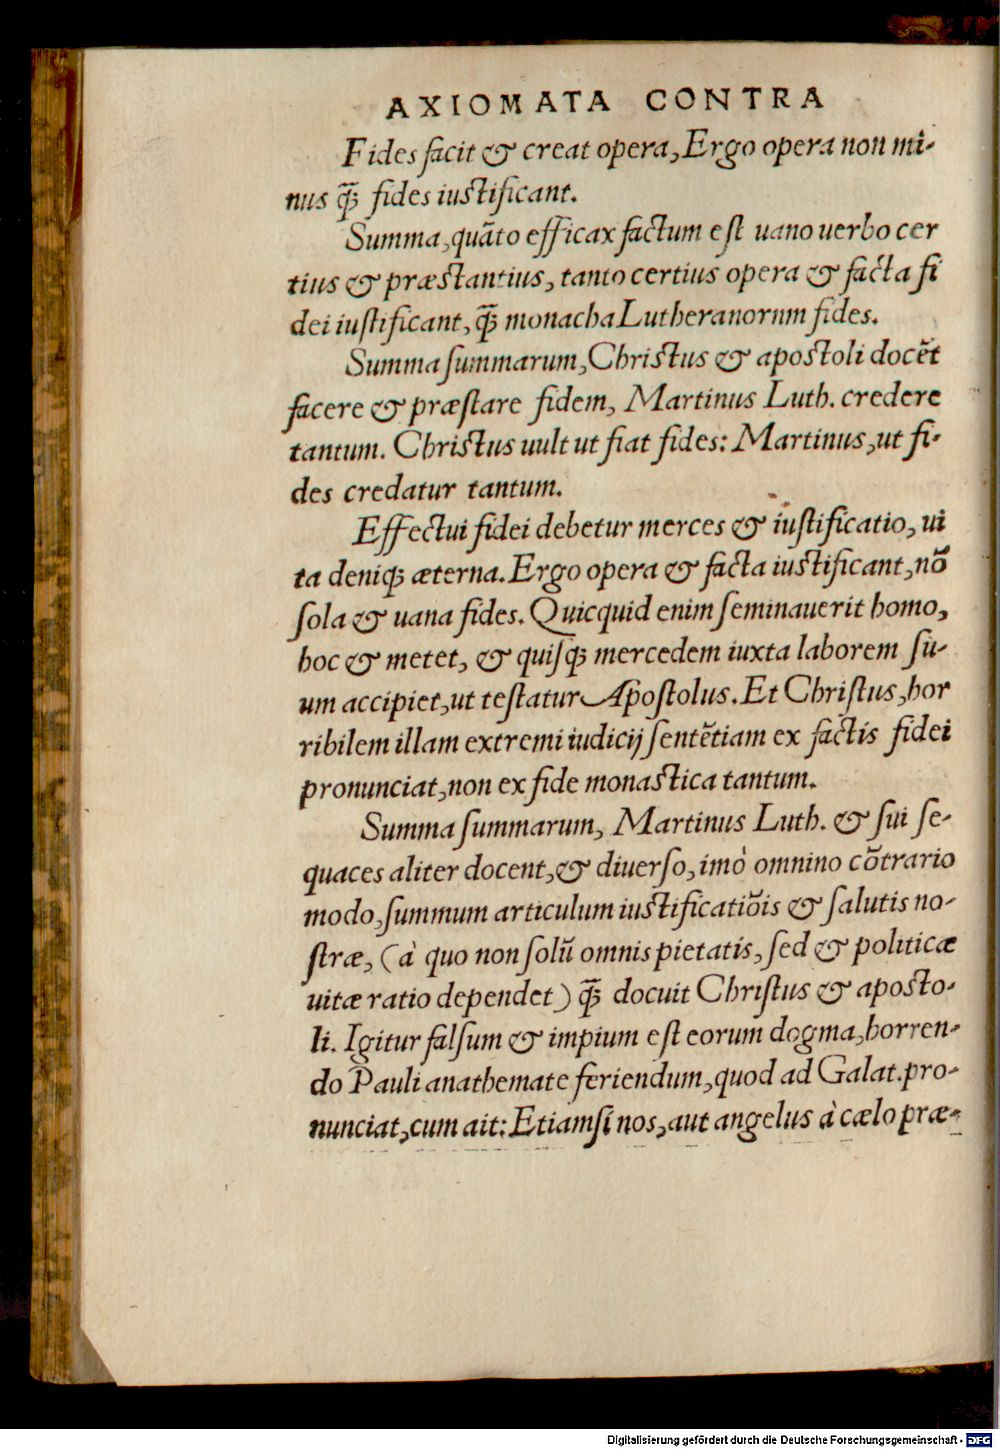 AXIOMATA CONTRA
Fides facit & creat opera, Ergo opera non mi-
nus q̃ꝫ fides iustificant.
Summa, quãto efficax factum est uano uerbo cer
tius & præstantius, tanto certius opera & facta fi
dei iustificant, q̃ꝫ monacha Lutheranorum fides.
Summa summarum, Christus & apostoli docẽt
facere & præstare fidem, Martinus Luth. credere
tantum. Christus uult ut fiat fides: Martinus, ut fi-
des credatur tantum.
Effectui fidei debetur merces & iustificatio, ui
ta deniqꝫ æterna. Ergo opera & facta iustificant, nõ
sola & uana fides. Quicquid enim seminauerit homo,
hoc & metet, & quisqꝫ mercedem iuxta laborem su-
um accipiet, ut testatur Apostolus. Et Christus, hor
ribilem illam extremi iudicij sentẽtiam ex factis fidei
pronunciat, non ex fide monastica tantum.
Summa summarum, Martinus Luth. & sui se-
quaces aliter docent, & diuerso, imò omnino cõtrario
modo, summum articulum iustificatiõis & salutis no-
stræ, (à quo non solũ omnis pietatis, sed & politicæ
uitæ ratio dependet) q̃ꝫ docuit Christus & aposto-
li. Igitur falsum & impium est eorum dogma, horren-
do Pauli anathemate feriendum, quod ad Galat. pro-
nunciat, cum ait: Etiamsi nos, aut angelus à cælo præ-
Digitalisierung gefördert durch die Deutsche Forschungsgemeinschaft - DFG